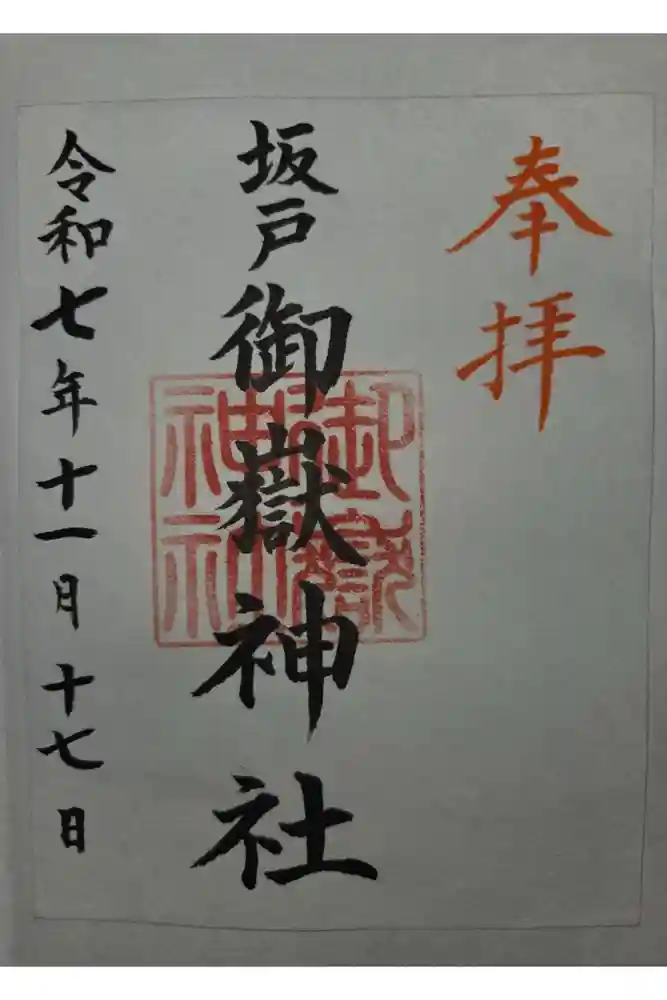 奉拝
坂戸御嶽神社
御嶽
神社
令和七年十一月十七日